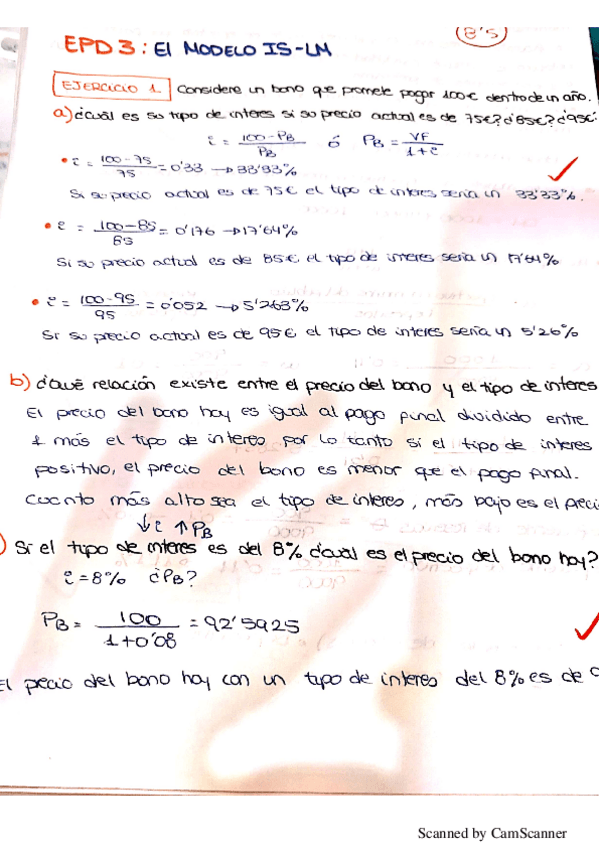 8'5
EPD 3: El MODELO IS-LM
EJERCICIO 1. Considere un bono que promete pagar 100€ dentro de un año.
a) ¿cuál es su tipo de interes si su precio actual es de 75€? ¿85€? ¿95€?
i = 100-PB / PB ó PB = VF / 1+i
• i = 100-75 / 75 = 0'33 → 33'33%
Si su precio actual es de 75€ el tipo de interes seria un 33'33%.
• i = 100-85 / 85 = 0'176 → 17'64%
Si su precio actual es de 85€ el tipo de interes seria un 17'64%
• i = 100-95 / 95 = 0'052 → 5'263%
Si su precio actual es de 95€ el tipo de interes seria un 5'26%
b) ¿Qué relación existe entre el precio del bono y el tipo de interes
El precio del bono hoy es igual al pago final dividido entre
1 más el tipo de interes por lo tanto si el tipo de interes
positivo, el precio del bono es menor que el pago final.
Cuanto más alto sea el tipo de interes, más bajo es el preci
↓i ↑PB
) Si el tipo de interes es del 8% ¿cual es el precio del bono hoy?
i = 8% ¿PB?
PB = 100 / 1+0'08 = 92'5925
El precio del bono hoy con un tipo de interes del 8% es de
Scanned by CamScanner